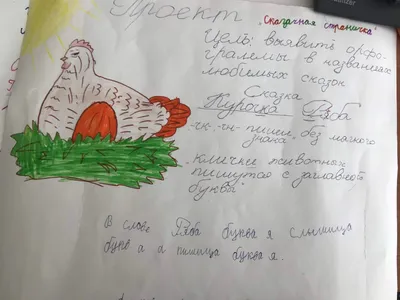 Проект
„Сказочная страничка"
Цель: выявить орфо-
граммы в названиях
любимых сказок
Сказка
Курочка Ряба
-чк-, -чн- пишем без мягкого
знака
.кличкее животных
пишутся с заглавной
буквы
В слове Ряба буква я слышища
букв а а пишища буква я.